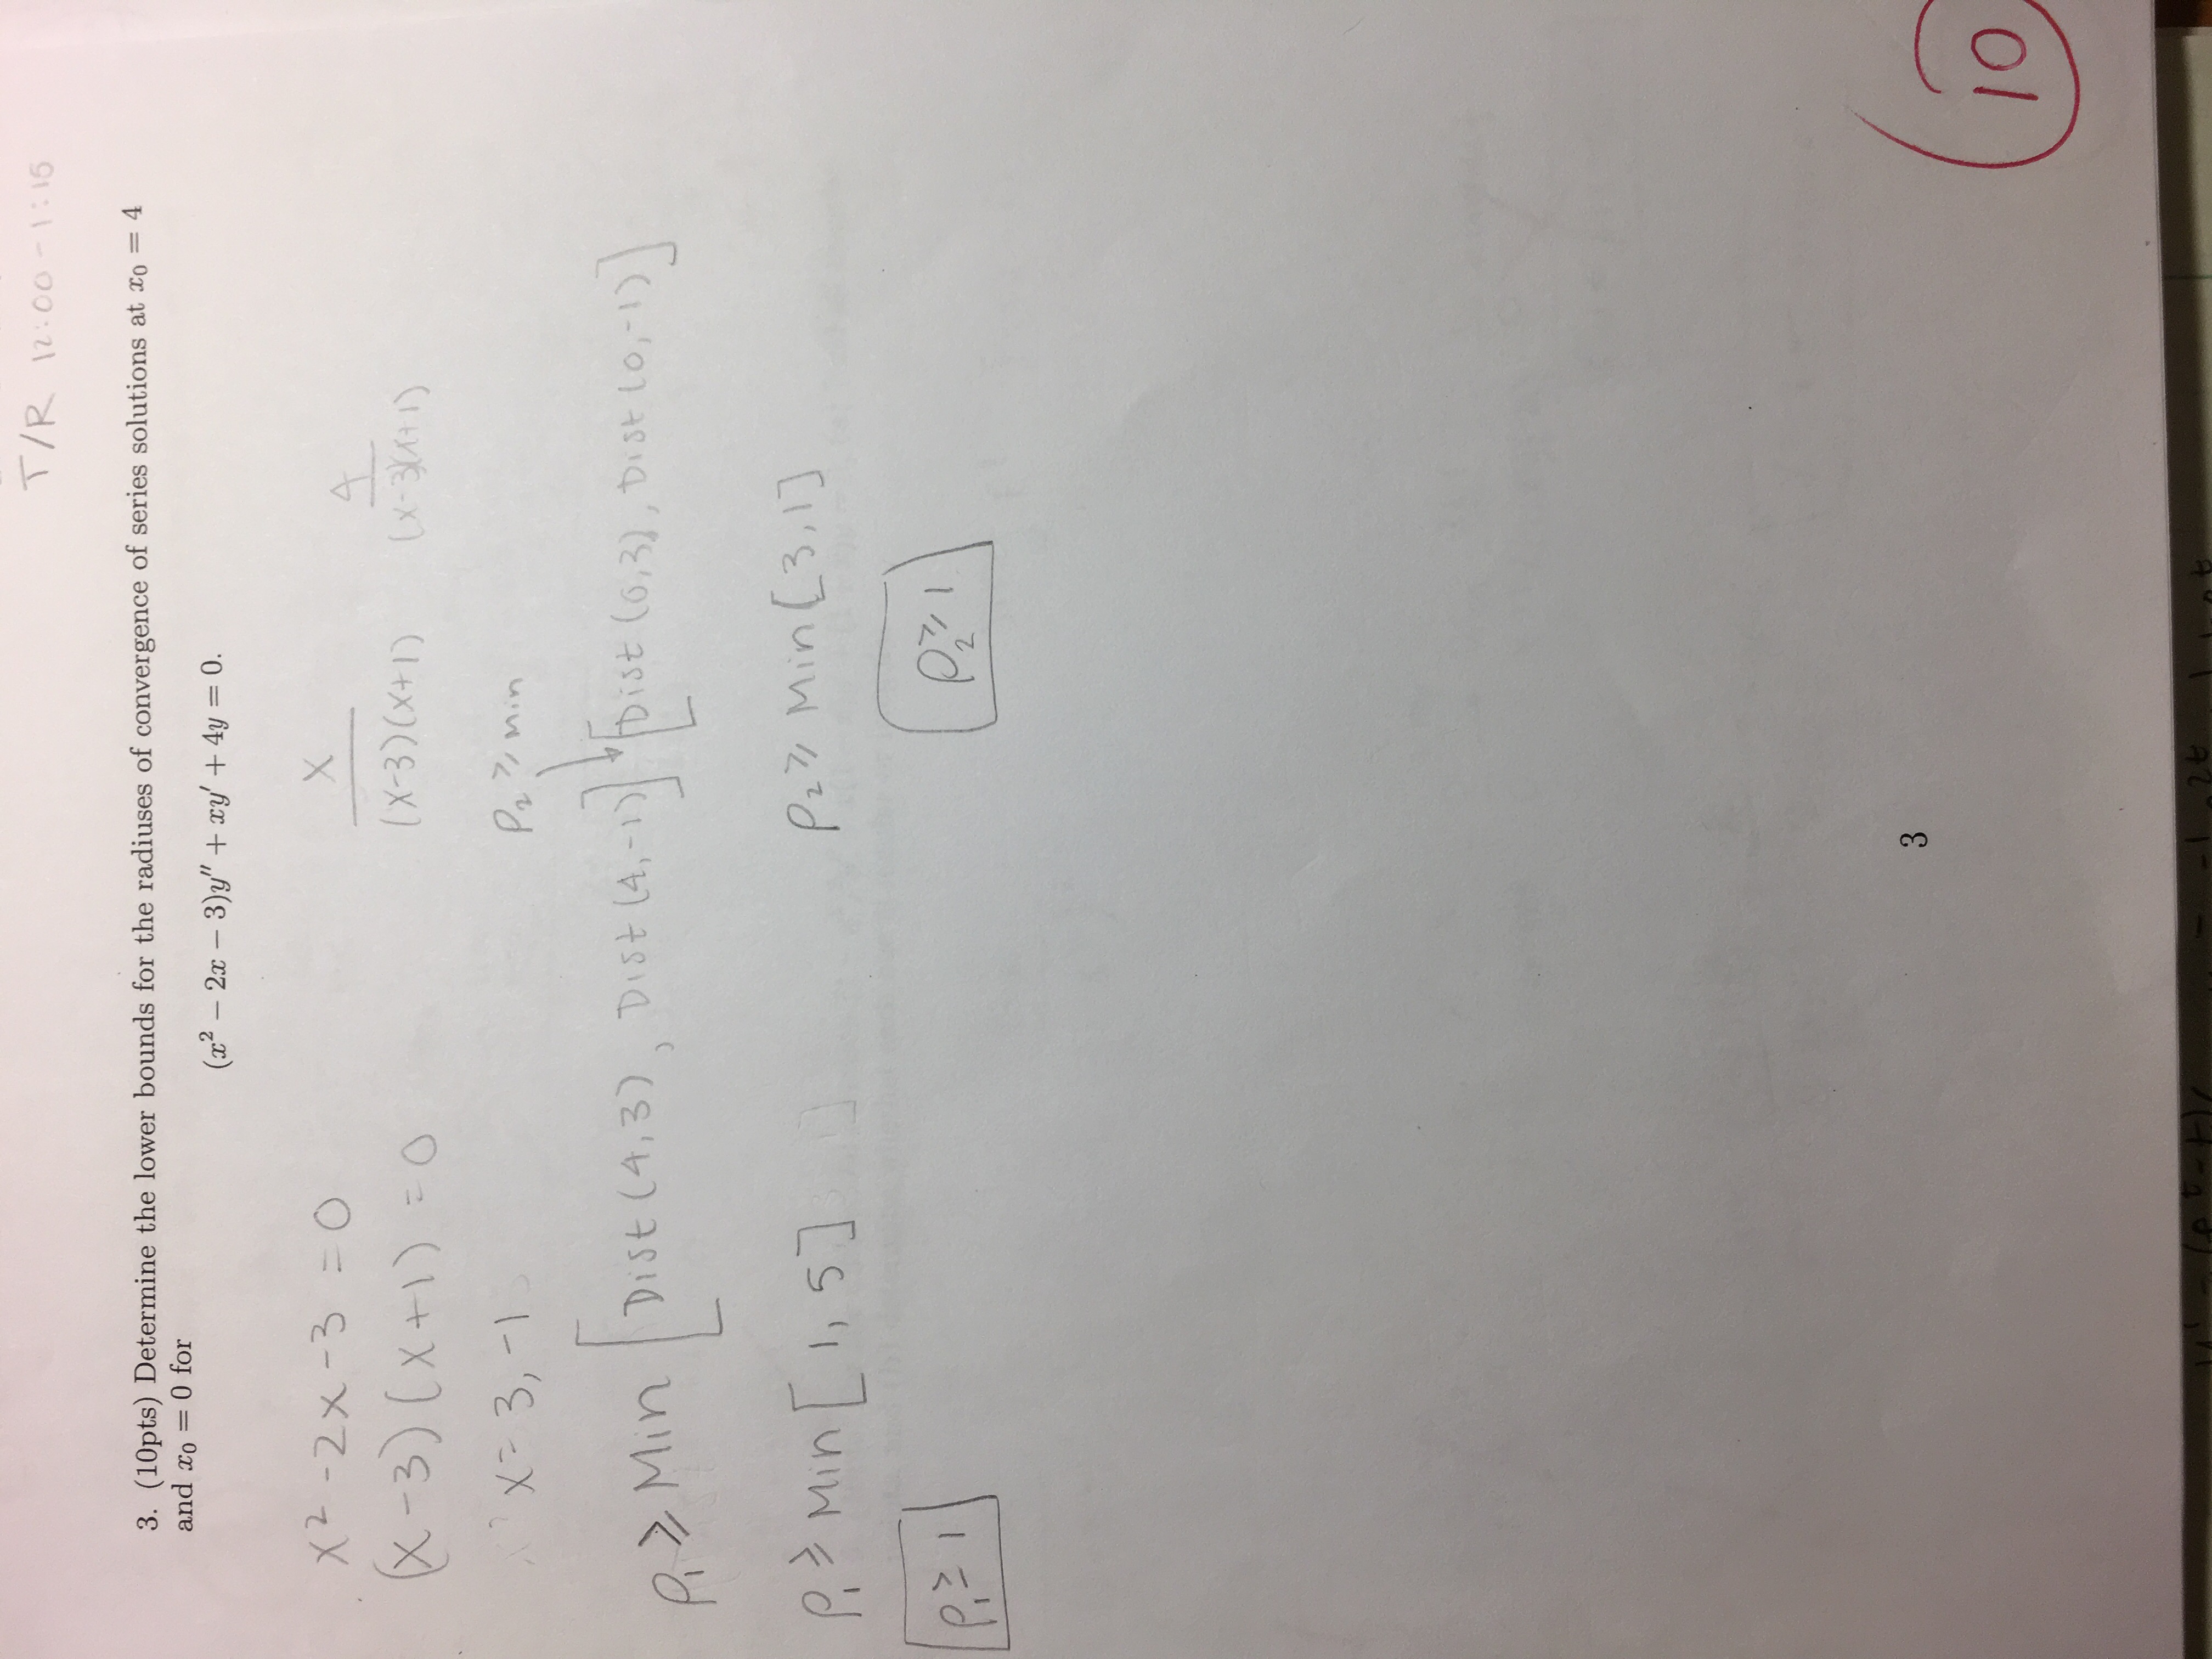 T/R 12:00-1:15
3. (10pts) Determine the lower bounds for the radiuses of convergence of series solutions at x₀ = 4
and x₀ = 0 for
(x² − 2x − 3)y″ + xy′ + 4y = 0.
x² - 2x - 3 = 0
(x-3)(x+1) = 0
x = 3, -1
x/(x-3)(x+1) 4/(x-3)(x+1)
ρ₂ ≥ min
ρ₁ ≥ Min [Dist(4,3), Dist(4,-1)] [Dist(0,3), Dist(0,-1)]
ρ₁ ≥ Min [1, 5]
ρ₂ ≥ Min [3, 1]
ρ₁ ≥ 1
ρ₂ ≥ 1
3
10